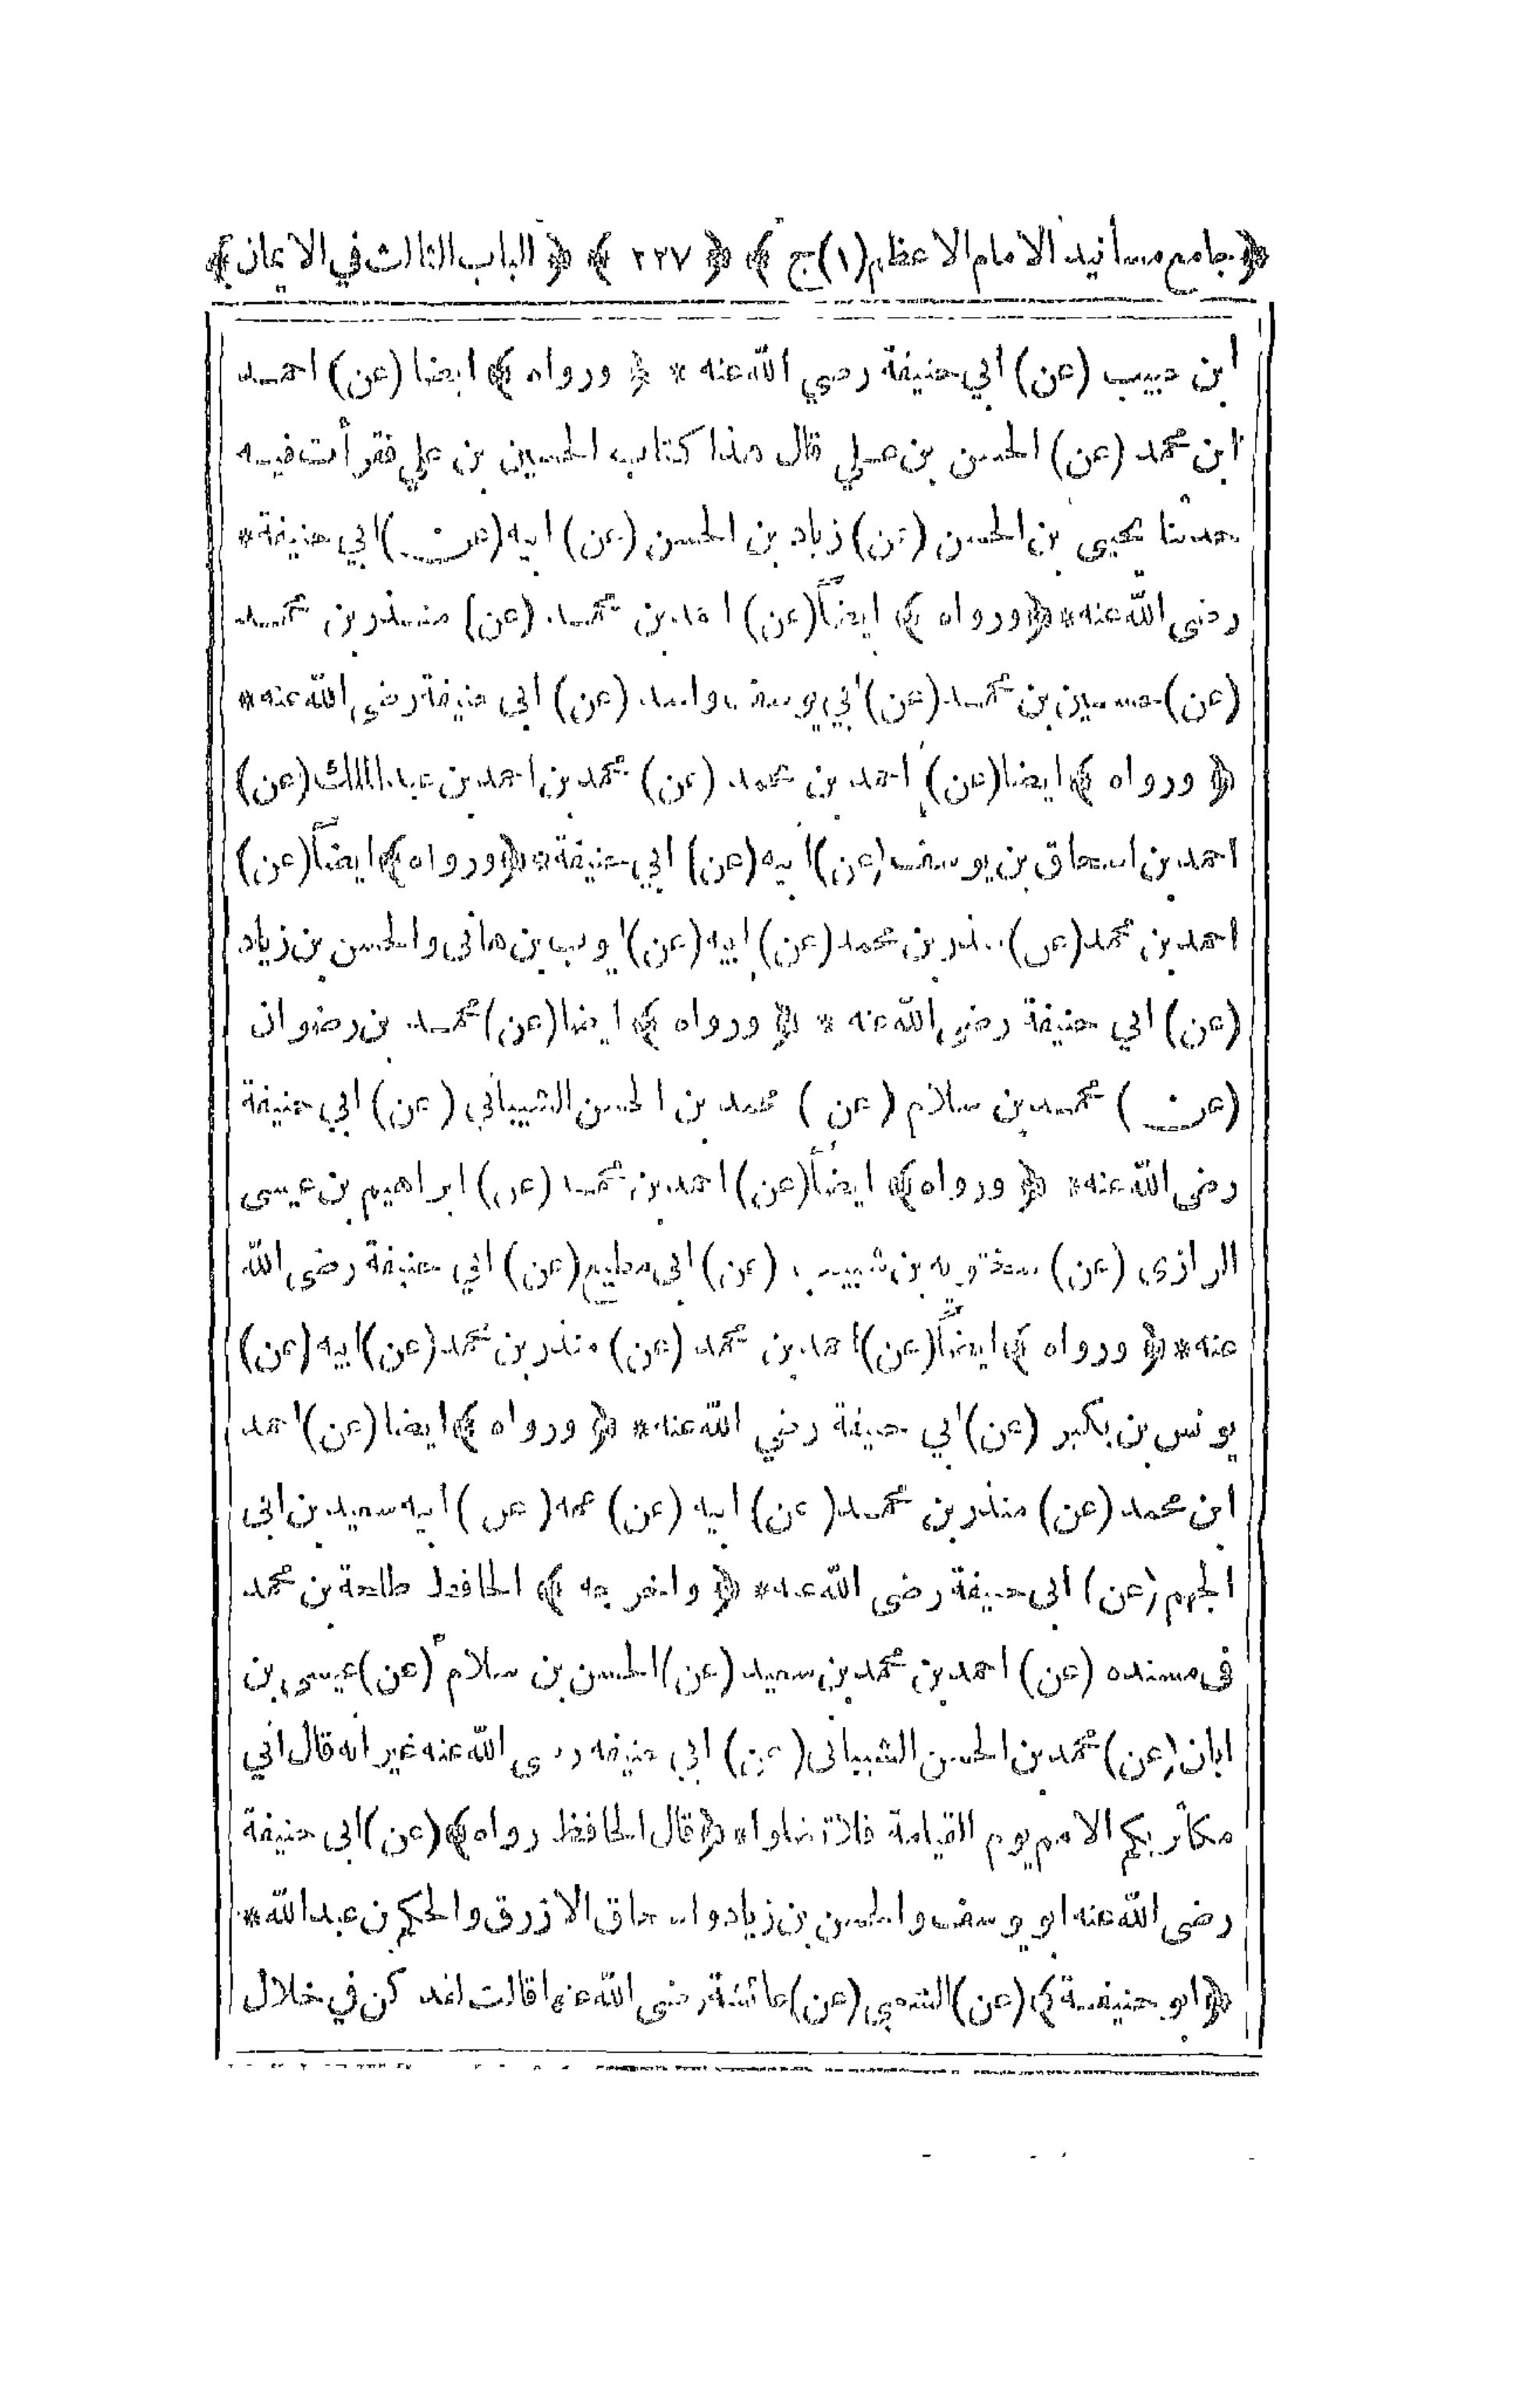 ﴿جامع مسانيد الامام الاعظم(١)ج﴾ ﴿٢٢٧﴾ ﴿الباب الثالث في الايمان﴾
ابن حبيب (عن) ابي حنيفة رضي الله عنه * ﴿ورواه﴾ ايضا (عن) احمد
ابن محمد (عن) الحسن بن علي قال هذا كتاب الحسين بن علي فقرأت فيه
حدثنا يحيى بن الحسن (عن) زياد بن الحسن (عن) ابيه (عن) ابي حنيفة *
رضى الله عنه * ﴿ورواه﴾ ايضاً (عن) احمد بن محمد (عن) منذر بن محمد
(عن) حسين بن محمد (عن) ابي يوسف واسد (عن) ابى حنيفة رضى الله عنه *
﴿ورواه﴾ ايضا (عن) احمد بن محمد (عن) محمد بن احمد بن عبد الملك (عن)
احمد بن اسحاق بن يوسف (عن) ابيه (عن) ابي حنيفة * ﴿ورواه﴾ ايضاً (عن)
احمد بن محمد (عن) منذر بن محمد (عن) ابيه (عن) ايوب بن هانى والحسن بن زياد
(عن) ابي حنيفة رضى الله عنه * ﴿ورواه﴾ ايضا (عن) محمد بن رضوان
(عن) محمد بن سلام (عن) محمد بن الحسن الشيبانى (عن) ابي حنيفة
رضى الله عنه * ﴿ورواه﴾ ايضاً (عن) احمد بن محمد (عن) ابراهيم بن عيسى
الرازى (عن) بن شبيب (عن) ابى مطيع (عن) ابي حنيفة رضى الله
عنه * ﴿ورواه﴾ ايضاً (عن) احمد بن محمد (عن) منذر بن محمد (عن) ابيه (عن)
يونس بن بكير (عن) ابي حنيفة رضي الله عنه * ﴿ورواه﴾ ايضا (عن) احمد
ابن محمد (عن) منذر بن محمد (عن) ابيه (عن) عمه (عن) ابيه سعيد بن ابى
الجهم (عن) ابى حنيفة رضى الله عنه * ﴿واخرجه﴾ الحافظ طلحة بن محمد
فى مسنده (عن) احمد بن محمد بن سعيد (عن) الحسن بن سلام (عن) عيسى بن
ابان (عن) محمد بن الحسن الشيبانى (عن) ابي حنيفه رضى الله عنه غير انه قال انى
مكاثر بكم الامم يوم القيامة فلا تضلوا * ﴿قال الحافظ رواه﴾ (عن) ابى حنيفة
رضى الله عنه ابو يوسف والحسن بن زياد واسحاق الازرق والحكم بن عبد الله *
﴿ابو حنيفة﴾ (عن) الشعبي (عن) عائشة رضى الله عنها قالت لقد كن في خلال